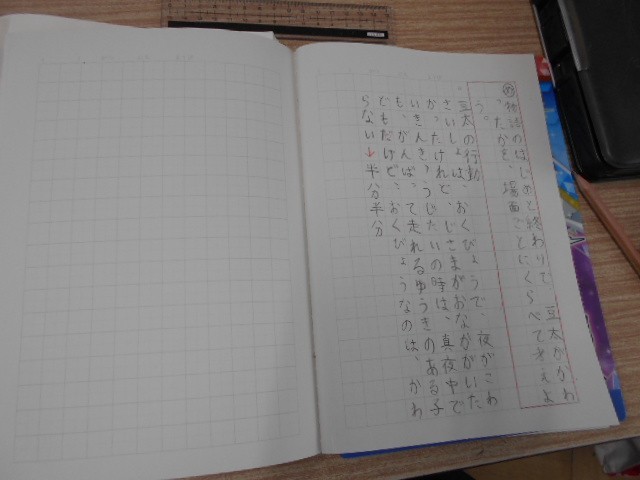 め 物語のはじめと終わりで、豆太がかわ
ったかを、場面ごとにくらべて考えよ
う。
豆太の行動
さいしょは、おくびょうで、夜がこわ
かったけれど、じさまがおなががいた
いきんきゅうじたいの時は、真夜中で
も、がんばって走れるゆうきのある子
どもだけど、おくびょうなのは、かわ
らない→半分半分